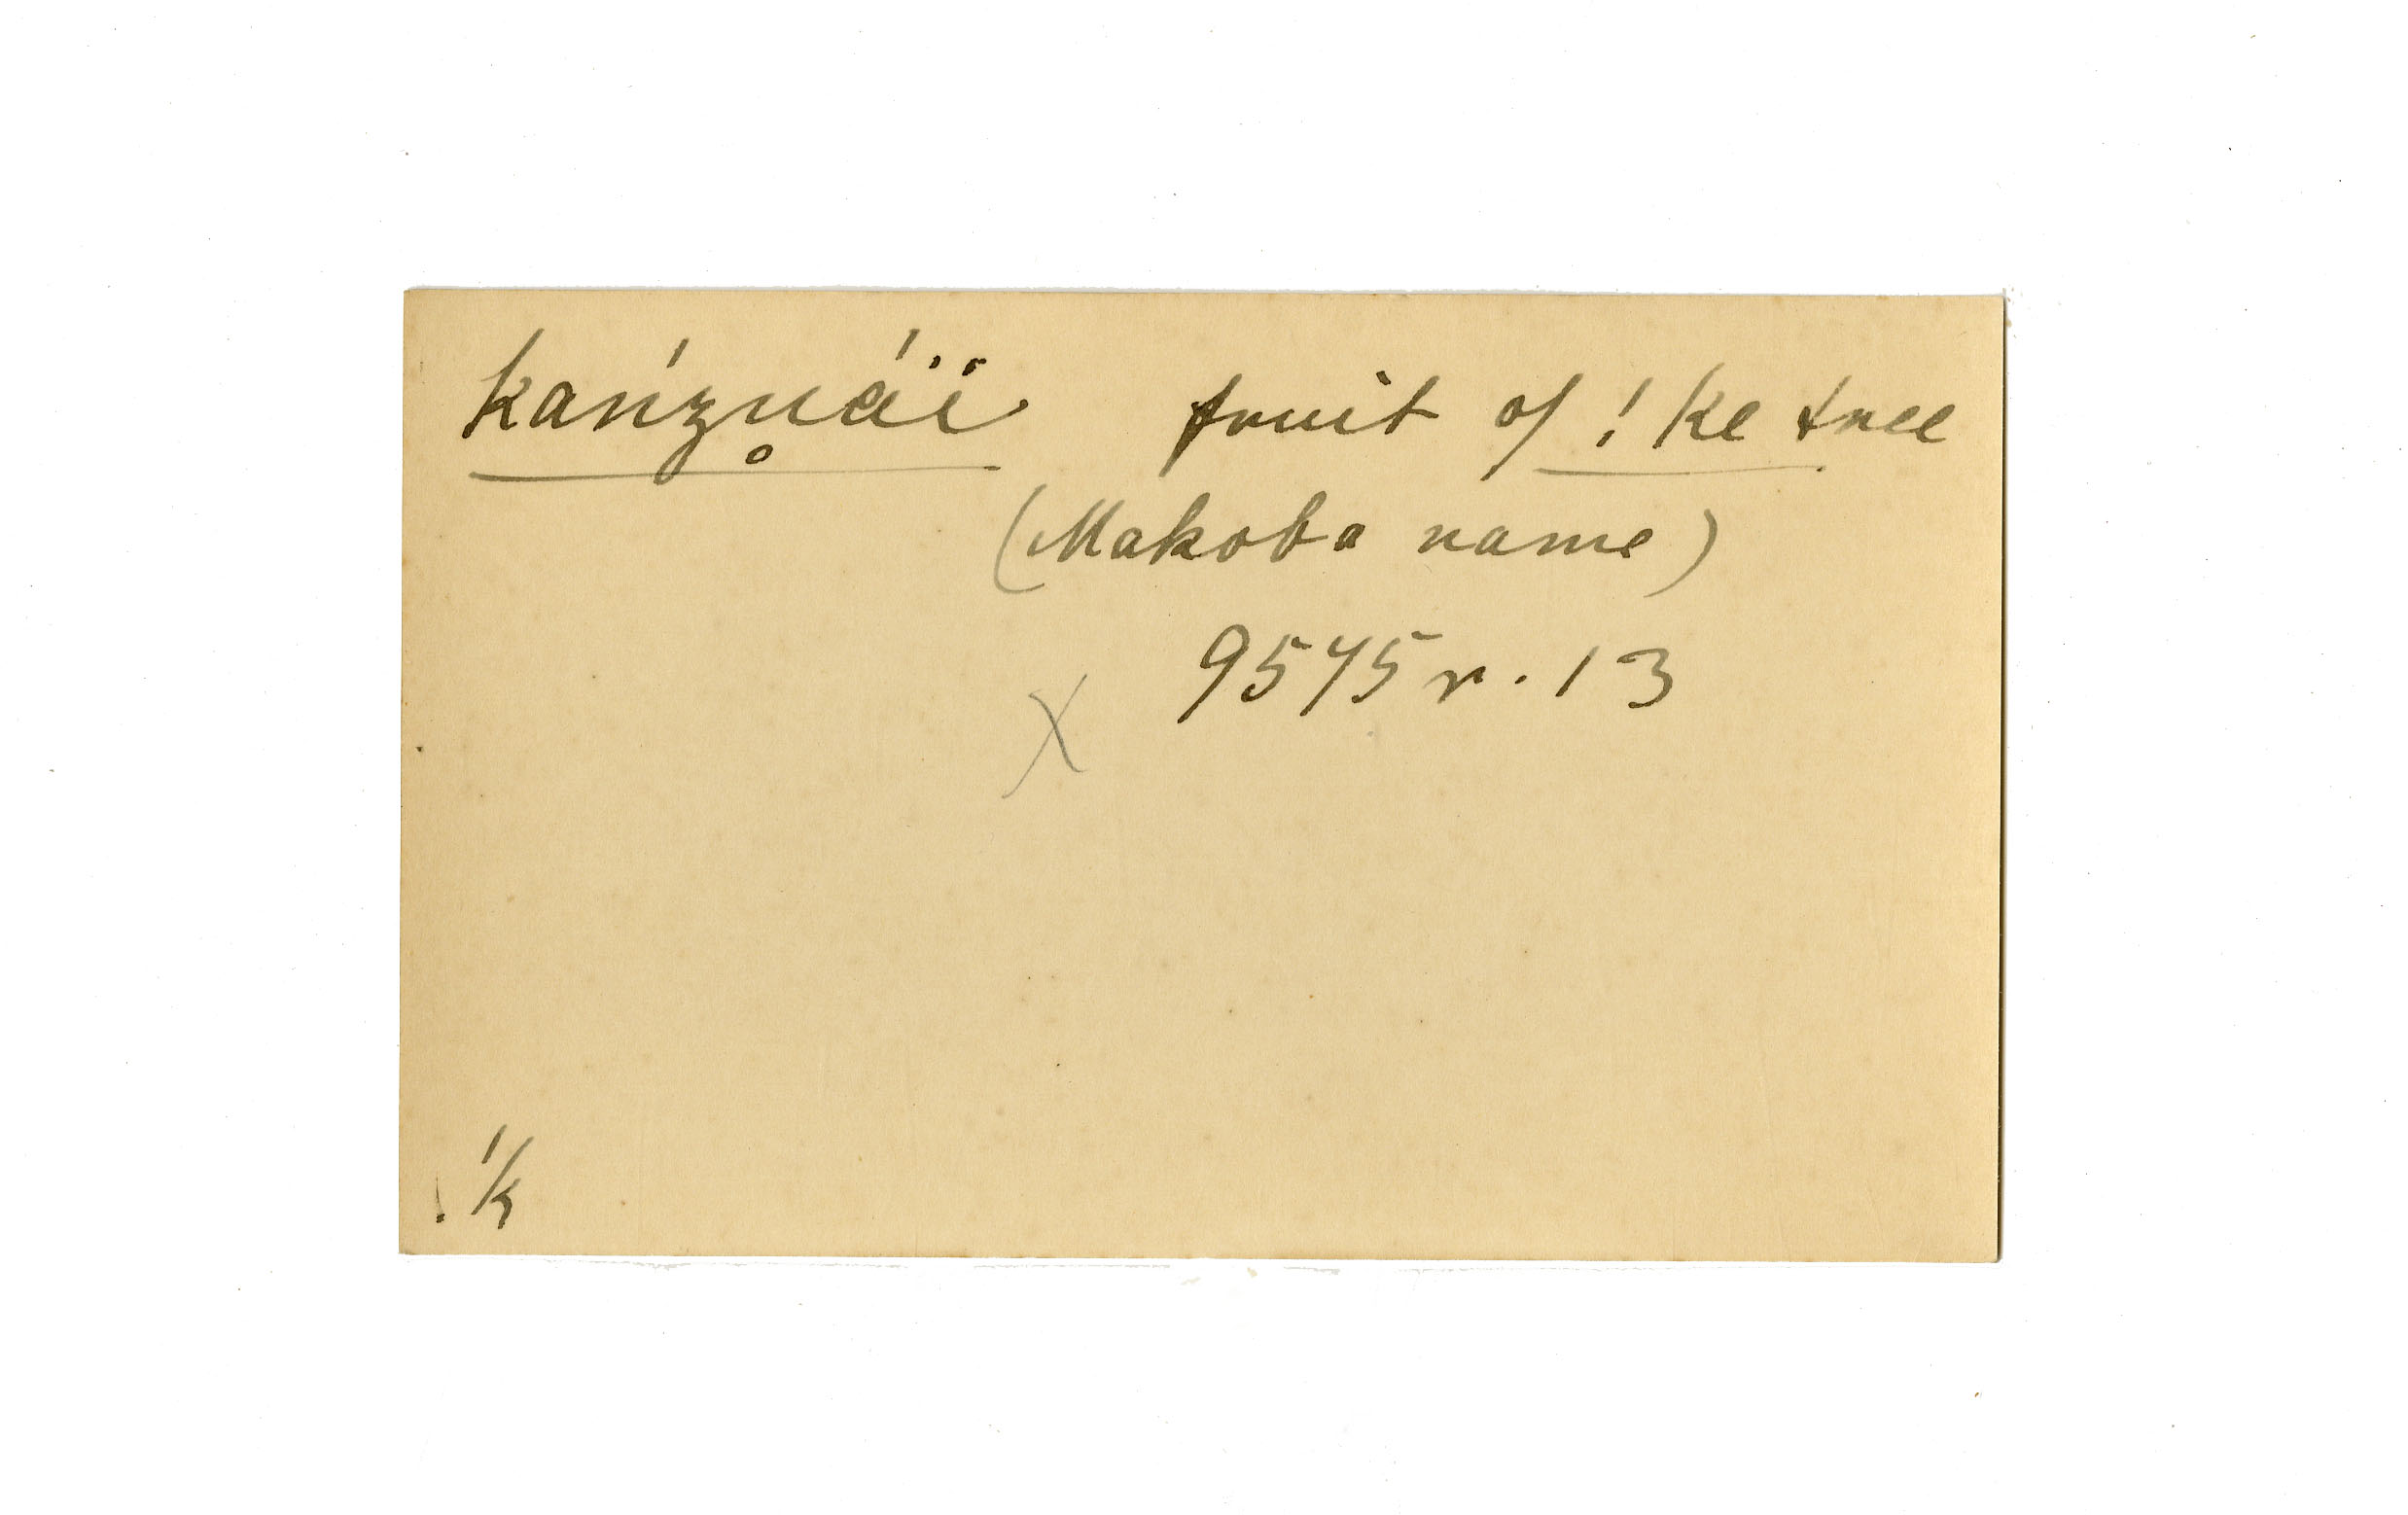 kańzu̥áïï fruit of !ke tree
(Makoba name)
9575 r. 13
X
!k